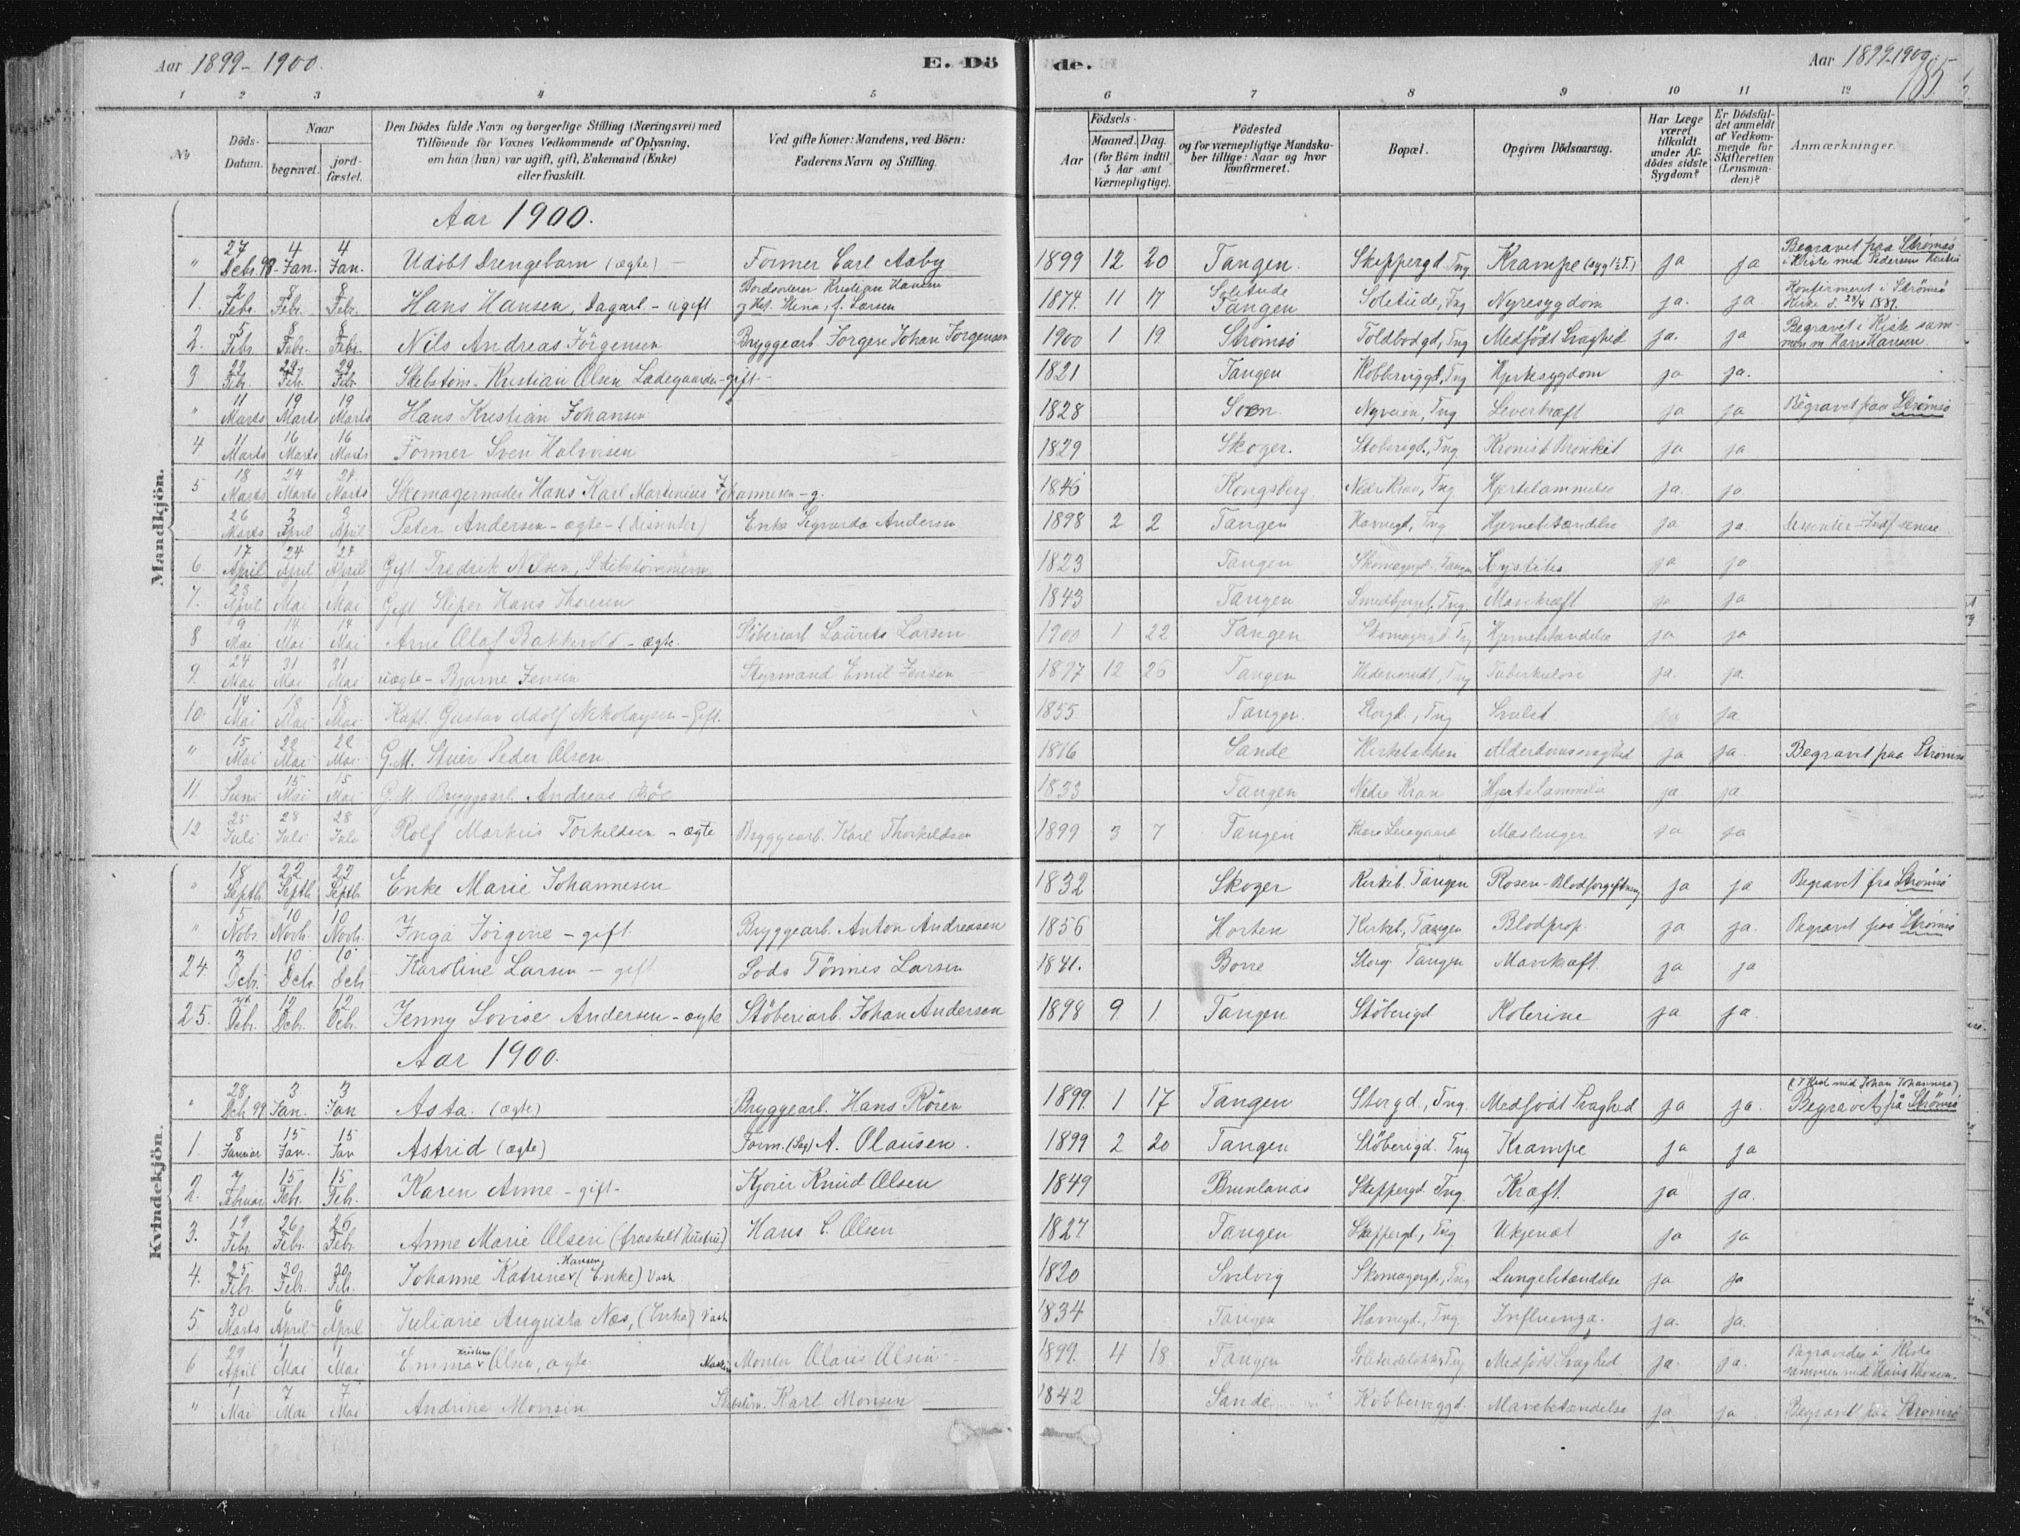 Aar 1899-1900. E. Dö de. Aar 1899-1900
185.
1 2 3 4 5 6 7 8 9 10 11 12
No Döds-Datum. Naar begravet. jordfæstet. Den Dödes fulde Navn og borgerlige Stilling (Næringsvei) med Tilföiende for Voxnes Vedkommende af Oplysning, om han (hun) var ugift, gift, Enkemand (Enke) eller fraskilt. Ved gifte Koner: Mandens, ved Börn: Faderens Navn og Stilling. Födsels- Aar Maaned. Dag. (for Börn indtil 5 Aar samt Værnepligtige). Födested og for værnepligtige Mandskaber tillige: Naar og hvor konfirmeret. Bopæl. Opgiven Dödsaarsag. Har Læge været tilkaldt under Afdödes sidste Sygdom? Er Dödsfaldet anmeldt af Vedkommende for Skifteretten (Lensmanden)? Anmærkninger.
Mandkjön.
Aar 1900.
" 27 Debr. 99 4 Jan. 4 Jan. Udöbt Drengebarn (ægte) - Former Carl Aaby 1899 12 20 Tangen. Skippergd. Tng Krampe ja ja Begravet paa Strømsø i Kiste med
1. 2 Febr. 8 Febr. 8 Febr. Hans Hansen, Dagarb. - ugift Bordsorterer Kristian Hansen og Hst. Stina, f. Larsen 1874. 11 17 Solitude Tangen Solitude, Tng Nyresygdom ja. ja Konfirmeret i Strömsö Kirke d. 28/4 1889.
2. 5 Febr 8 Febr. 8 Febr. Nils Andreas Jörgensen Bryggearb Jörgen Johan Jörgensen 1900 1 19. Strømsø Toldbodgd, Tng Medfødt Svaghed ja. ja Begravet i Kiste sammen m. Hans Hansen
3 22 Feb. 29 Feb. 29 Feb Skibstöm. Kristian Olsen Ladegaarden - gift - 1821 Tangen Kobberviggt, Tng Hjertesygdom ja ja.
" 11 Marts 19 Marts 19 Marts Hans Kristian Johansen 1828 Sven. Nyveien, Tng Leverkræft ja ja Begravet paa Strømsø
4 11 Marts 16 Marts 16 Marts Former Sven Halvorsen 1829 Skoger. Stöberigd., Tng. Kronisk Bronkit ja ja
5 18 Marts 24 Marts 24 Marts Skomagermester Hans Karl Martinius Johannesen - g. 1846 Kongsberg Nedre Kran, Tng Hjertelammelse ja. ja
26 Marts 3 April 3 April Peter Andersen - ægte - (Dissenter) Enke Segnarda Andersen 1898 2 2 Tangen Havnegd, Tng Hjernebetændelse ja ja. Dissenter
6. 17 April 24 April 24 April Gift Fredrik Nilsen, Skibstømmerm. 1823 Tangen Skomagergd. Tangen Cystites ja ja
7. 23 April Mai Mai Gift Sliper Hans Thoresen 1843 Tangen Smedbjerget, Tng. Mavekræft ja ja
8 9 Mai 14 Mai 14 Mai Arne Olaf Bakkevold - ægte. Støberiarb Laurits Larsen 1900 1 22 Tangen Skomagergd. Tng Hjernebetændelse ja ja
9. 24 Mai 31 Mai 31 Mai uægte - Bjarne Jensen Styrmand Emil Jensen 1897 12 26 Tangen Tng Tuberkulose ja. ja.
10. 14 Mai 18 Mai 18 Mai Kapt. Gustav Adolf Nikolaysen - Gift. 1855. Tangen. Storgd., Tng Svulst ja.
" 15 Mai 22 Mai 22 Mai G.M. Stuer Peder Olsen 1816 Sande Kirkebakken Alderdomssvaghed ja ja. Begravet paa Strømsø
11. 2 Juni 15 Mai 15 Mai G.M. Bryggearb. Andreas Böe 1833 Tangen Nedre Kran Hjertelammelse ja ja
12 25 Juli 28 Juli 28 Juli Rolf Markus Torkildsen - ægte Bryggearb. Karl Thorkildsen 1899 3 7 Tangen Meslinger ja ja
Kvindekjön.
" 18 Septb. 22 Septb 22 Septb Enke Marie Johannesen 1832 Skoger Kirkeb. Tangen Rosen - Blodforgiftning ja ja Begravet fra Strømsø
" 5 Nobr. 10 Novb. 10 Novb. Inga Jörgine - gift Bryggearb. Anton Andreasen 1856 Horten Kirkeb, Tangen Blodprop. ja ja. Begravet paa Strømsø
24. 3 Debr. 10 Debr. 10 Debr Karoline Larsen - gift Lods Tönnes Larsen 1841. Borre Storg. Tangen Mavekræft. ja ja
25. Debr. 12 Debr. 12 Debr. Jenny Lovise Andersen - ægte Stöberiarb. Johan Andersen 1898 9. 1. Tangen Stöberigd Kolerine ja ja.
Aar 1900.
" 28 Debr 99 3 Jan. 3 Jan Asta. (ægte) Bryggearb. Hans Rören 1899. 1 17 Tangen Storgd., Tng. Medfödt Svaghed ja ja. (I Kiste med Johan Johannesen) Begravet på Strömsö
1. 8 Januar 15 Jan. 15 Jan Astrid (ægte) Form. (Sag) A. Olausen. 1899 2 20 Tangen Stöberigd. Tng Krampe ja ja
2. 7 Februar 15 Febr. 15 Feb. Karen Anne - gift - Kjörer Knud Olsen 1849 Brunlanæs Skippergd. Tng Kræft. ja ja.
3. 19 Febr. 26 Febr. 26 Febr. Anne Marie Olsen (fraskilt Hustru) Hans C. Olsen 1827 Tangen Skippergd., Tng Ukjendt ja ja
4. 25 Febr. 30 Febr. 30 Feb. Johanne Katrine Hansen (Enke) Vask 1820 Svelvig Skomagergd, Tng Lungebetændelse ja ja
5. 30 Marts 6 April 6 April Juliane Augusta Næs, (Enke) Vask 1834 Tangen Havnegd., Tng Influenza. ja. ja.
6 29 April 1 Mai 1 Mai Emma Kristine Olsen, ægte Maskin Montør Olaus Olsen 1899. 4 18 Tangen Solitudeløkk, Tng Medfødt Svaghed ja. ja. Begravedes i Kiste sammen med Hans Thoresen.
" 1 Mai 7 Mai 7 Mai Andrine Monsen Skibstöm. Karl Monsen 1842 Sande Kobberviggd. Mavebetændelse ja ja. Begravet paa Strømsø